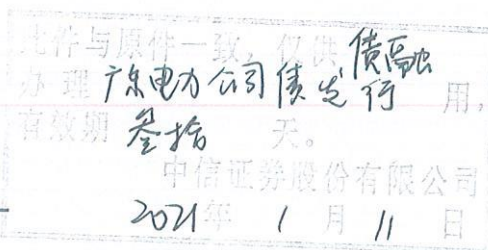 此件与原件一致，仅供债融
办理广东电力公司债发行用，
有效期叁拾天。
中信证券股份有限公司
2021年1月11日